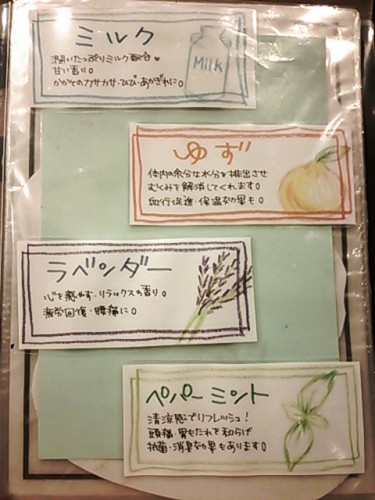 ミルク
潤いたっぷりミルク配合♥
甘い香り。
かかとのカサカサ・ひび・あかぎれに。
Milk
ゆず
体内の余分な水分を排出させ
むくみを解消してくれます。
血行促進・保温効果も。
ラベンダー
心を癒やす・リラックスの香り。
疲労回復・腰痛に。
ペパーミント
清涼感でリフレッシュ!
頭痛・胃もたれを和らげ
抗菌・消臭効果もあります。